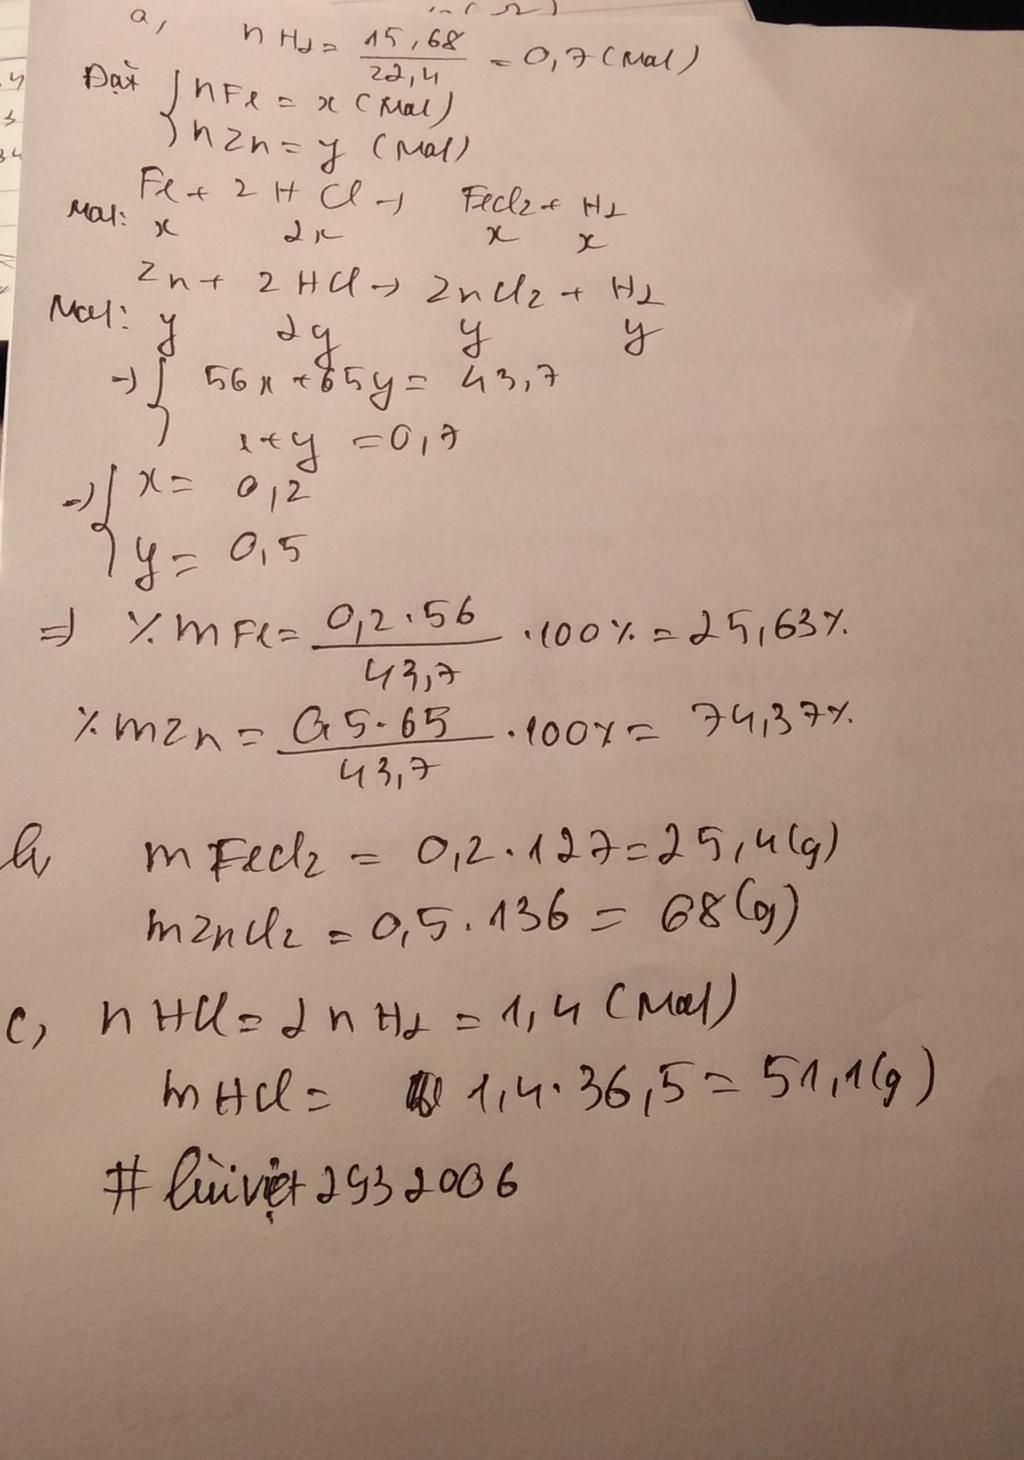 a,
nH2 = 15,68 / 22,4 = 0,7 (mol)
Đặt { nFe = x (mol)
nZn = y (mol)
Fe + 2HCl → FeCl2 + H2
Mol: x 2x x x
Zn + 2HCl → ZnCl2 + H2
Mol: y 2y y y
→ { 56x + 65y = 43,7
x + y = 0,7
→ { x = 0,2
y = 0,5
⇒ % mFe = 0,2.56 / 43,7 .100% = 25,63%
% mZn = 0,5.65 / 43,7 .100% = 74,37%
b, mFeCl2 = 0,2.127 = 25,4 (g)
mZnCl2 = 0,5.136 = 68 (g)
c, nHCl = 2nH2 = 1,4 (mol)
mHCl = 1,4.36,5 = 51,1 (g)